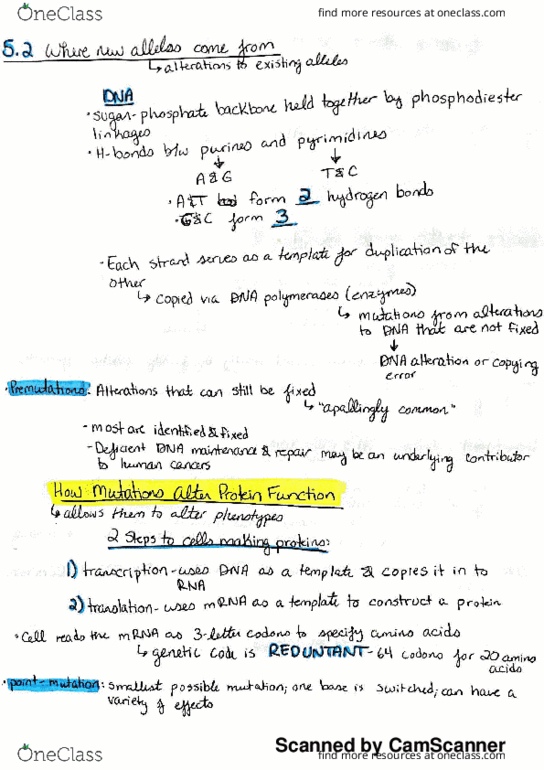 OneClass
find more resources at oneclass.com
5.2 Where new alleles come from
↳ alterations to existing alleles
DNA
· sugar-phosphate backbone held together by phosphodiester
linkages
· H-bonds b/w purines and pyrimidines
↓ ↓
A & G T & C
· A&T form 2 hydrogen bonds
· G&C form 3
- Each strand serves as a template for duplication of the
other
↳ copied via DNA polymerases (enzymes)
↳ mutations from alterations
to DNA that are not fixed
↓
DNA alteration or copying
error
· Premutations: Alterations that can still be fixed
↳ "apallingly common"
- most are identified & fixed
- Deficient DNA maintenance & repair may be an underlying contributor
to human cancers
How Mutations Alter Protein Function
↳ allows them to alter phenotypes
2 Steps to cells making proteins:
1) transcription - uses DNA as a template & copies it in to
RNA
2) translation - uses mRNA as a template to construct a protein
· Cell reads the mRNA as 3-letter codons to specify amino acids
↳ genetic code is REDUNTANT - 64 codons for 20 amino
acids
· point-mutation: smallest possible mutation; one base is switched; can have a
variety of effects
Scanned by CamScanner
OneClass
find more resources at oneclass.com